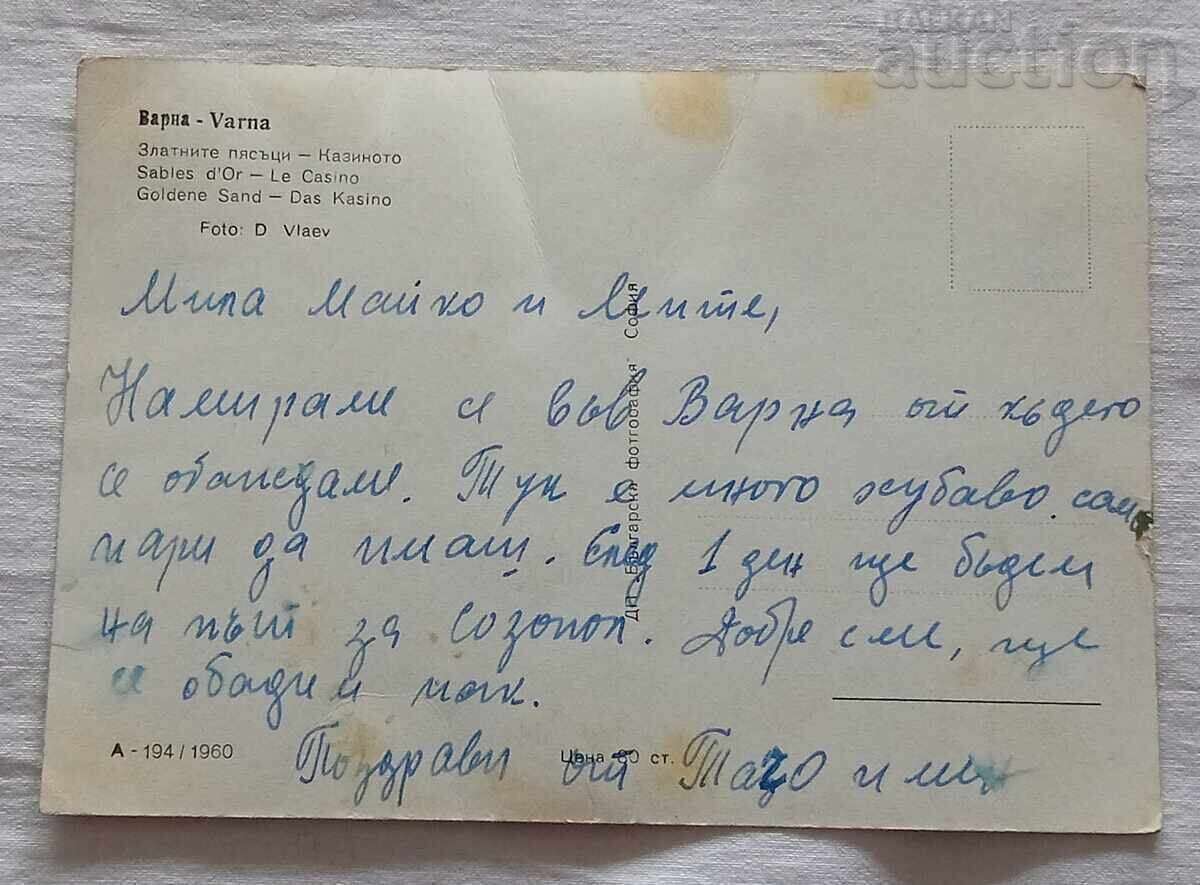 БАЛКАН
auction
Варна - Varna
Златните пясъци — Казиното
Sables d'Or — Le Casino
Goldene Sand — Das Kasino
Foto: D Vlaev
Мила Майко и
Намираме се във Варна от където
се обаждаме. Тук е много хубаво. само
пари да имаш. След 1 ден ще бъдем
на път за Созопол. Добре сме, ще
се обадим пак.
Поздрави от и мен
ДП „Българска фотография" София
А - 194 / 1960
Цена 80 ст.